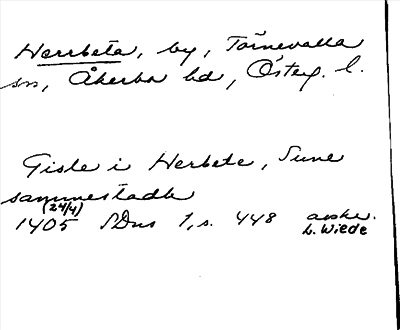 Herrbeta, by, Törnevalla
sn, Åkerbo hd, Österg. l.
Gisle i Herbete, Sune
sammestadh
(24/4)
1405 SDns 1, s. 448 avskr.
L. Wiede